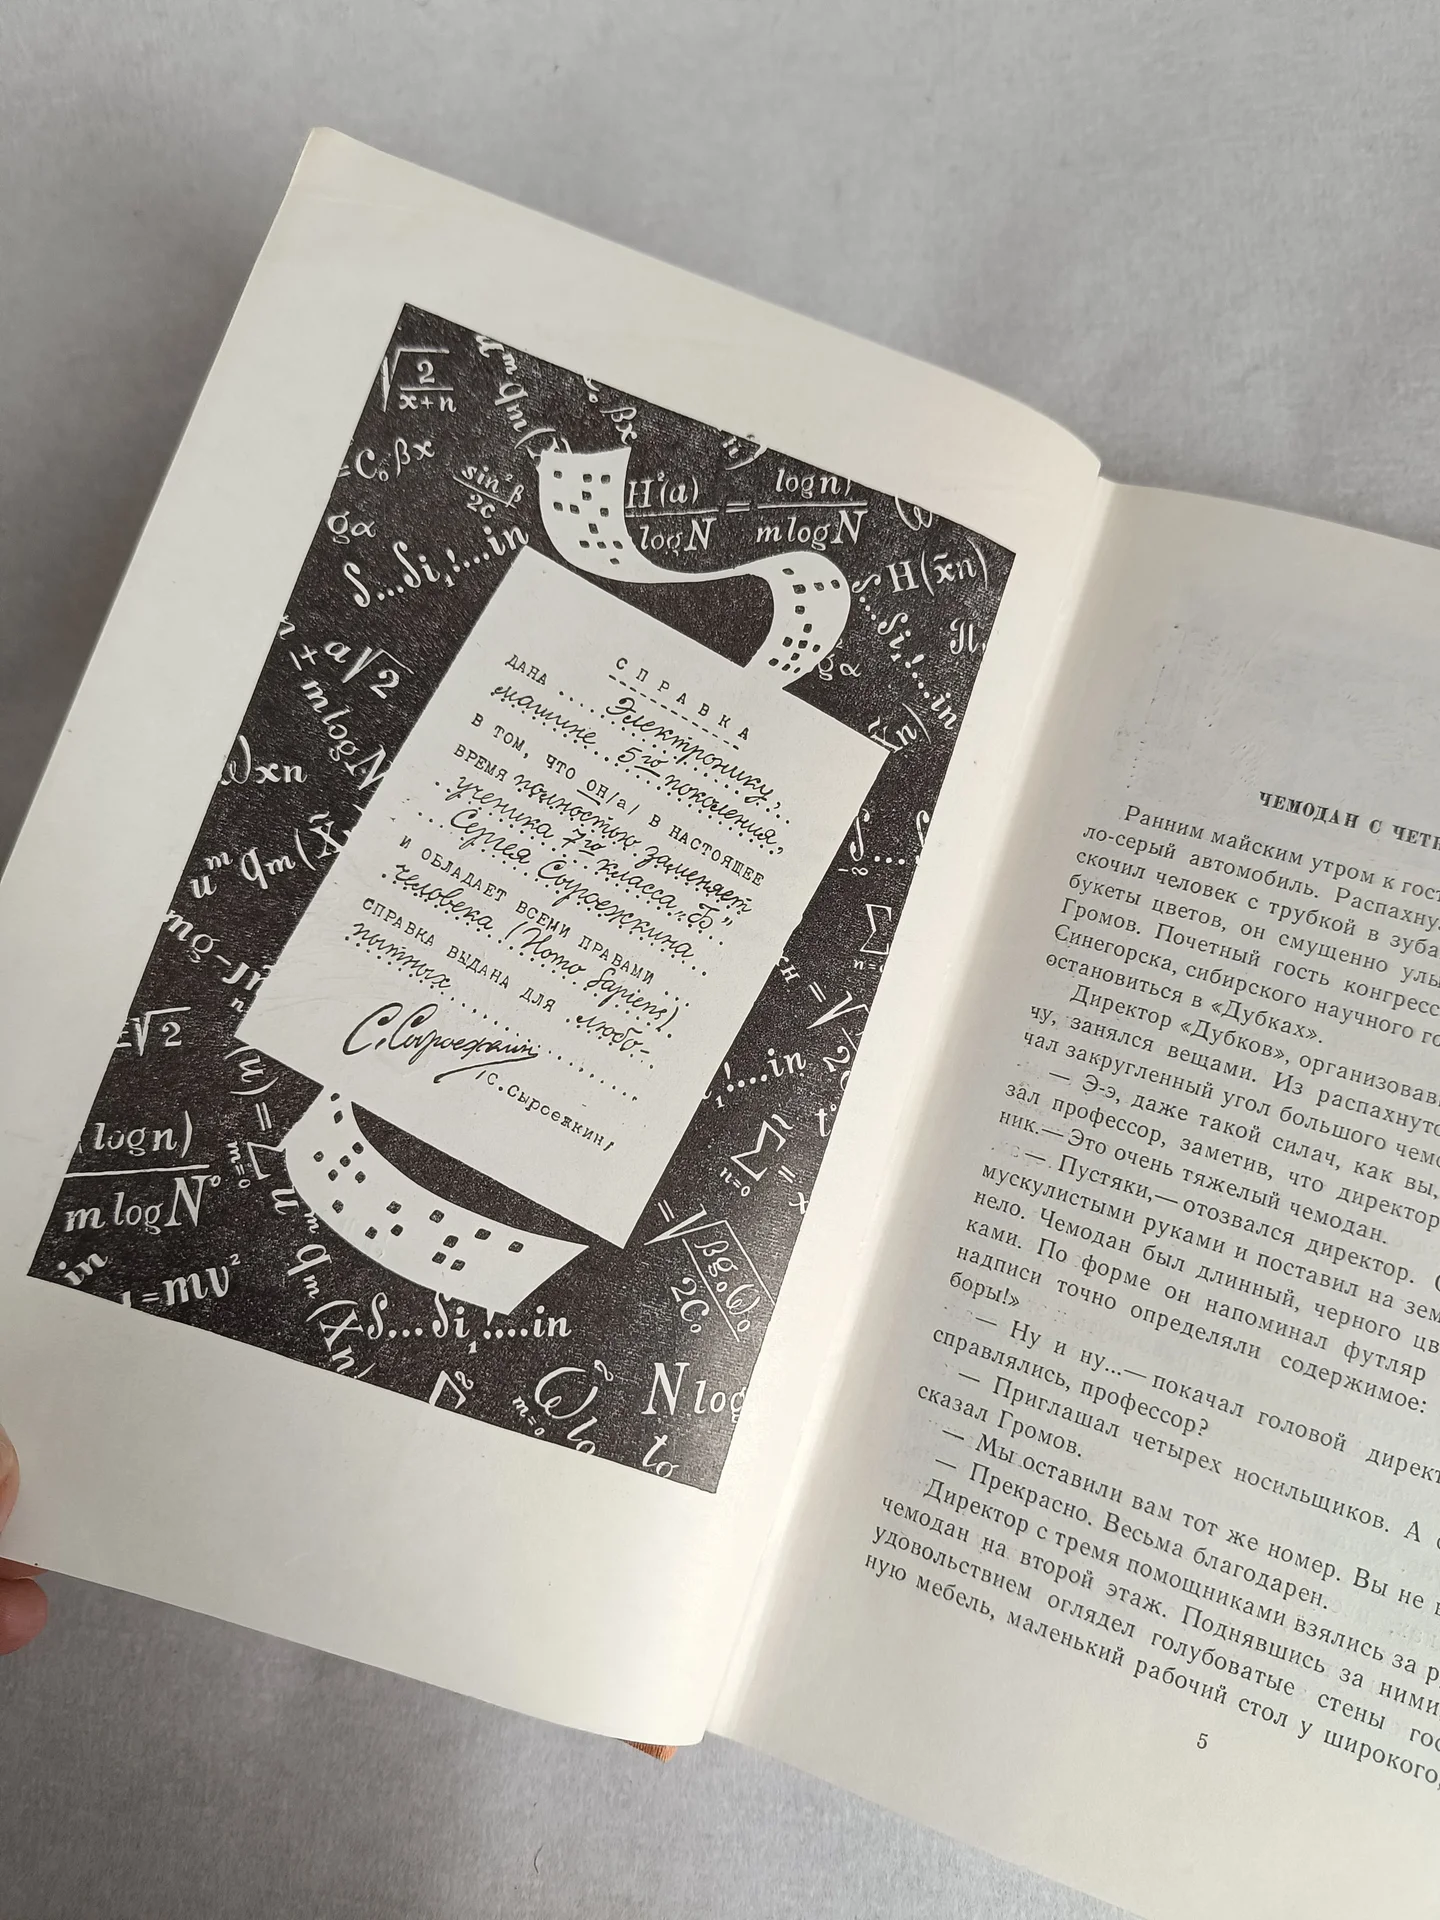 √2/x+n
=C₀βx
gα
sin²β/2c
H²(a)/logN = logn)/mlogN
H(x̄n)
a√2
mlogN
ωxn
uᵐqm(X
√2
(logn)
mlogN°
in
=mv²
S...Si,!....in
N log
to
СПРАВКА
ДАНА .... Электронику,
машине 5го поколения,
В ТОМ, ЧТО ОН/а/ В НАСТОЯЩЕЕ
ВРЕМЯ полностью заменяет
ученика 7го класса „Б"
Сергея Сыроежкина
И ОБЛАДАЕТ ВСЕМИ ПРАВАМИ ...
человека (Homo Sapiens).
СПРАВКА ВЫДАНА ДЛЯ любо-
пытных
С.Сыроежкин
/С.Сыроежкин/
ЧЕМОДАН С ЧЕТ
Ранним майским утром к гост
ло-серый автомобиль. Распахну
скочил человек с трубкой в зуба
букеты цветов, он смущенно улы
Громов. Почетный гость конгресс
Синегорска, сибирского научного го
остановиться в «Дубках».
Директор «Дубков», организовав
чу, занялся вещами. Из распахнуто
чал закругленный угол большого чемо
— Э-э, даже такой силач, как вы,
зал профессор, заметив, что директор
ник.— Это очень тяжелый чемодан.
— Пустяки,— отозвался директор.
мускулистыми руками и поставил на зем
нело. Чемодан был длинный, черного цв
ками. По форме он напоминал футляр
надписи точно определяли содержимое:
боры!»
— Ну и ну...— покачал головой дирек
справлялись, профессор?
— Приглашал четырех носильщиков. А
сказал Громов.
— Мы оставили вам тот же номер. Вы не
— Прекрасно. Весьма благодарен.
Директор с тремя помощниками взялись за р
чемодан на второй этаж. Поднявшись за ними
удовольствием оглядел голубоватые стены гос
ную мебель, маленький рабочий стол у широкого,
5